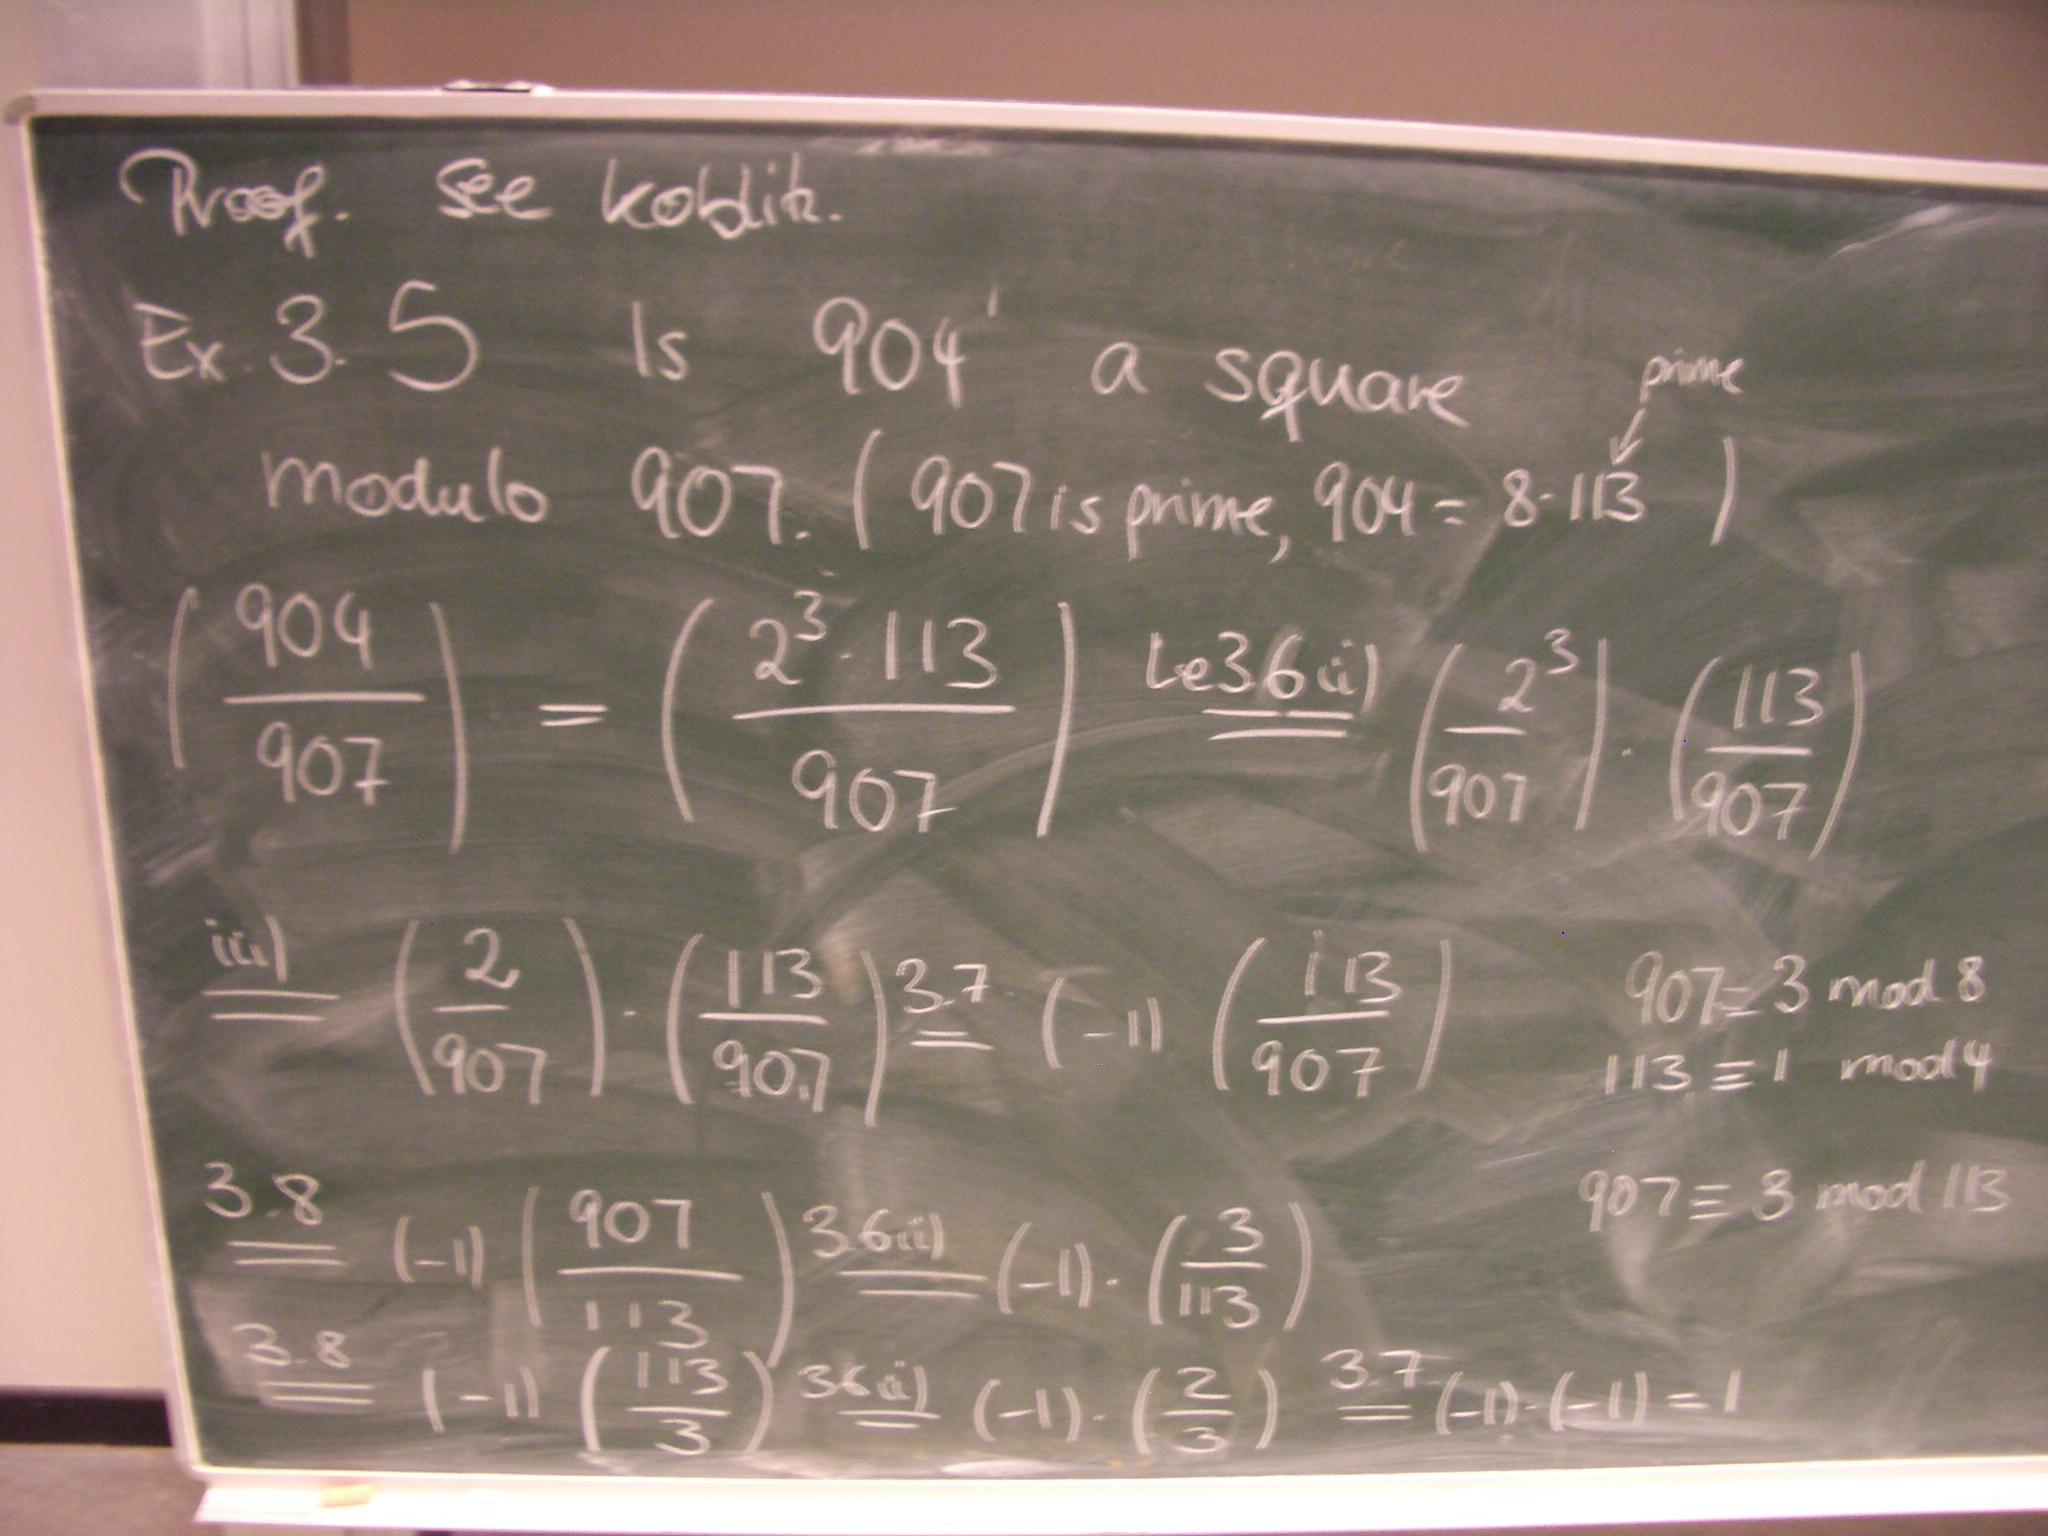 Proof. See Koblitz.
Ex. 3.5 Is 904 a square
prime
↓
modulo 907. (907 is prime, 904 = 8·113)
(904/907) = (2³·113/907) Le 3.6 ii) = (2³/907) · (113/907)
iii) = (2/907) · (113/907) 3.7 = (-1) (113/907) 907 ≡ 3 mod 8
113 ≡ 1 mod 4
907 ≡ 3 mod 113
3.8 = (-1) (907/113) 3.6 ii) = (-1) · (3/113)
3.8 = (-1) (113/3) 3.6 ii) = (-1) · (2/3) 3.7 = (-1)·(-1) = 1